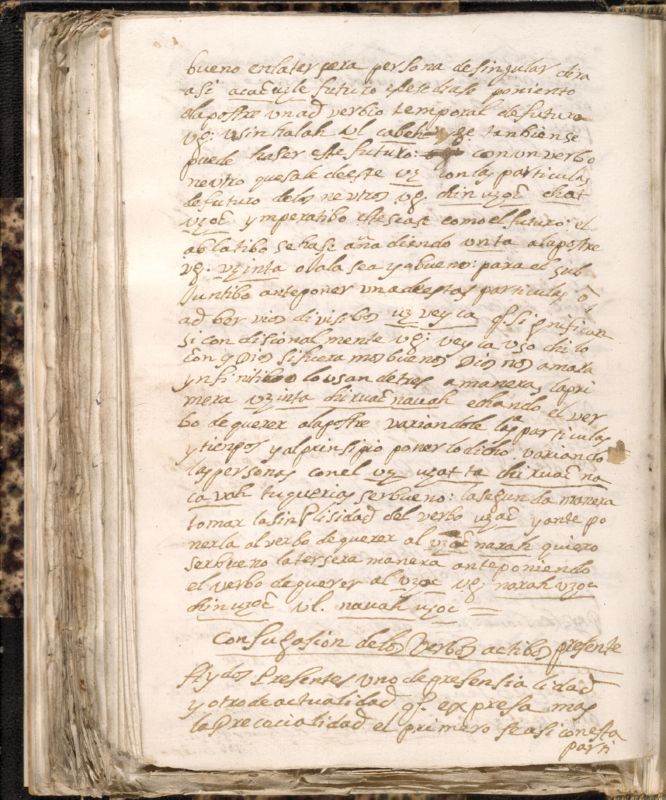 bueno en la tersera persona de singular dira
asi acaeuyle futuro este de ase poniento
a la postre un ad verbio temporal de futuro
vg. vsin halah vl cabeh vze tanbien se
puede haser este futuro: con un verbo
neutro que sale de este vz con las particulas
de futuro de los neutros vg. chin vzoc chat
vzoc ymperatibo este ase como el futuro: el
ablatibo se hase aña diendo vnta a la postre
vg. vzinta ojala sea yo bueno: para el sub
juntibo anteponer vna de estas particulas ô
ad bervios divisibos vz veyca q. significan
si con disional mente vg: vey ca vzo chi lo
con q Dios si fueramos buenos Dios nos amara
ynfinitibo lo usan de tres maneras la pri
mera vzinta chi ruac navah echando el ver
bo de querer a la postre variandole las particulas
y tienpos y al prinsipio poner lo dicho variando
las personas con el vz uzat ta chi ruac na
cavah tu querias ser bueno: la segunda manera
tomar la sinplisidad del verbo uzoc y ante po
nerla al verbo de querer al vzoc narah quiero
ser bueno la tersera manera anteponiendo
el verbo de querer al vzoc vg: narah vzoc
chin uzoc vl. navah uzoc =
Conjugasion de los Verbos actibos presente
Ay dos Presentes uno de presensialidad
y otro de actualidad q. expresa mas
la Precacialidad el primero se asi con esta
parti